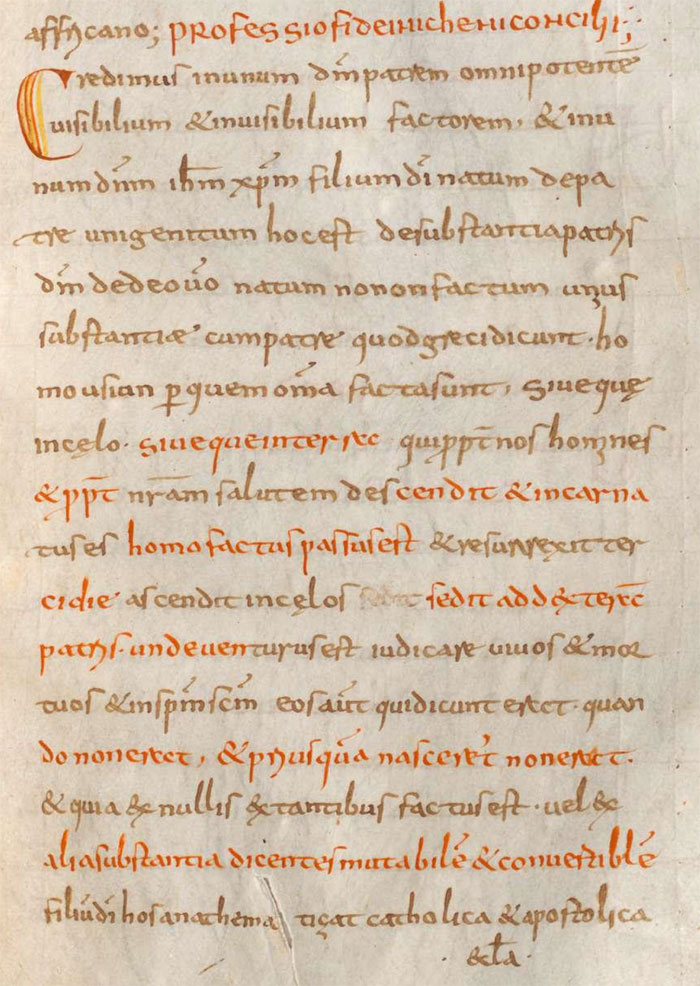 affricano; professio fidei nicheni concilii;
Credimus in unum dm̄ patrem omnipotentē
visibilium & invisibilium factorem, & in u
num dn̄m ih̄m xp̄m filium dī natum de pa
tre unigenitum hoc est de substantia patris
dm̄ de deo vō natum non onfactum unius
substantiæ cum patre quod greci dicunt · ho
mousian ꝑ quem om̄a facta sunt, sive quę
in cęlo · sive que in terrec qui ꝓpt̄ nos homines
& ꝓpt̄ nr̄am salutem descendit & incarna
tus es homo factus passus est & resurrexit ter
ci die ascendit in cęlos sedit sedit ad dexterec̄
patris · unde venturus est iudicare vivos & mor
tuos & in spm̄ scm̄ eos aūt qui dicunt erect · quan
do non erect, & priusquā nasceret̄ non erect ·
& quia ex nullis extantibus factus est · vel ex
alia substantia dicentes mutabilē & convertiblē
filiū dī hos anathema tiçat catholica & apostolica
· & cl̄a ·